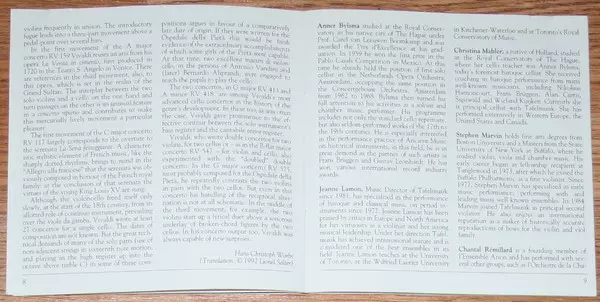 violins frequently in unison. The introductory
fugue leads into a three-part movement above a
pedal-point over several bars.
In the first movement of the A major
concerto RV 159 Vivaldi reuses an aria from his
opera La Verità in cimento, first produced in
1720 in the Teatro S. Angelo in Venice. There
are references in the third movement, also, to
this opera, which is set in the realm of the
Grand Sultan. The interplay between the two
solo violins and a cello on the one hand and
tutti passages on the other is an unusual feature
in a concerto ripieno and contributes to make
this musically lively movement a particular
pleasure.
The first movement of the C major concerto
RV 117 largely corresponds to the overture to
the serenata La Sena festeggiante. A character-
istic stylistic element of French music, like the
sharply dotted rhythms, brings to mind in the
"Allegro alla francese" that the serenata was ob-
viously composed in honour of the French royal
family: at the conclusion of that serenata the
virtues of the young King Louis XV are sung.
Although the violoncello freed itself only
slowly, at the start of the 18th century, from its
allotted role of continuo instrument, prevailing
over the viola da gamba, Vivaldi wrote at least
27 concertos for a single cello. The dates of
composition are not known. But the great tech-
nical demands of many of the solo parts (use of
non-adjacent strings in sixteenth note motion,
and playing in the high register up into the
octave above treble C) in some of these com-
8
positions argues in favour of a comparatively
late date of origin. If they were written for the
Ospedale della Pietà, that would be fresh
evidence of the extraordinary accomplishments
of which some girls of the Pietà were capable.
At that time, two excellent masters of violon-
cello, in the persons of Antonio Vandini and
(later) Bernardo Aliprandi, were engaged to
teach the pupils to play the cello.
The two concertos, in G major RV 413 and
A minor RV 418, are among Vivaldi's most
advanced cello concertos in the history of the
genre's development. In these two, as in so many
the case, Vivaldi gave prominence to the ef-
fective contrast between the solo instrument's
bass register and the cantabile tenor register.
Vivaldi, who wrote double concertos for two
violins, for two cellos or – as in the B-flat major
concerto RV 547 – for violin and cello also
experimented with the "doubled" double
concerto. In the G major concerto RV 575,
most probably composed for the Ospedale della
Pietà, he repeatedly contrasts the two violins
in pairs with the two cellos. But even in this
concerto his handling of the reciprocal alter-
nation is not at all schematic. In the middle of
the third movement, for example, the two
violins start up a lyrical duet above a sonorous
underlay of broken-chord figures by the two
cellos. In his concerto output too, Vivaldi was
always capable of new surprises.
Hans-Christoph Worbs
(Translation: © 1992 Lionel Salter)
Anner Bylsma studied at the Royal Conser-
vatory in his native city of The Hague under
Prof. Carel van Leeuwen Boomkamp and was
awarded the Prix d'Excellence at his grad-
uation. In 1959 he won the first prize in the
Pablo Casals Competition in Mexico. At this
time he already held the position of first solo
cellist in the Netherlands Opera Orchestra,
Amsterdam, occupying the same position in
the Concertgebouw Orchestra, Amsterdam,
from 1962 to 1968. Bylsma then turned his
full attention to his activities as a soloist and
chamber music performer. His programme
includes not only the standard cello repertoire,
but also seldom-performed works of the 17th to
the 19th centuries. He is especially interested
in the performance practice of Ancient Music
on historical instruments; in this field, he is in
great demand as the partner of such artists as
Frans Brüggen and Gustav Leonhardt. He has
won various international record industry
awards.
Jeanne Lamon, Music Director of Tafelmusik
since 1981, has specialized in the performance
of baroque and classical music, on period in-
struments since 1973. Jeanne Lamon has been
praised by critics in Europe and North America
for her virtuosity as a violinist and her strong
musical leadership. Under her direction Tafel-
musik has achieved international stature and is
considered one of the best ensembles in its
field. Jeanne Lamon teaches at the University
of Toronto, at the Wilfrid Laurier University
in Kitchener-Waterloo and at Toronto's Royal
Conservatory of Music.
Christina Mahler, a native of Holland, studied
at the Royal Conservatory of The Hague,
where her cello teacher was Anner Bylsma,
today's foremost baroque cellist. She received
coaching in baroque performance from many
well-known musicians, including Nikolaus
Harnoncourt, Frans Brüggen, Alan Curtis,
Sigiswald and Wieland Kuijken. Currently she
is principal cellist with Tafelmusik. She has
performed extensively in Western Europe, the
United States and Canada.
Stephen Marvin holds fine arts degrees from
Boston University and a Masters from the State
University of New York in Buffalo, where he
studied violin, viola and chamber music. His
early career began a fellowship recipient at
Tanglewood in 1973, after which he joined the
Buffalo Philharmonic, as a first violinist. Since
1977, Stephen Marvin has specialized in early
music performance, performing with and
leading many well known ensembles. In 1984
Marvin joined Tafelmusik as principal second
violinist. He also enjoys an international
reputation as a maker of historically accurate
reproductions of bows for the violin and viol
family.
Chantal Rémillard is a founding member of
l'Ensemble Arion and has performed with sev-
eral other groups, such as l'Orchestre de la Cha-
9